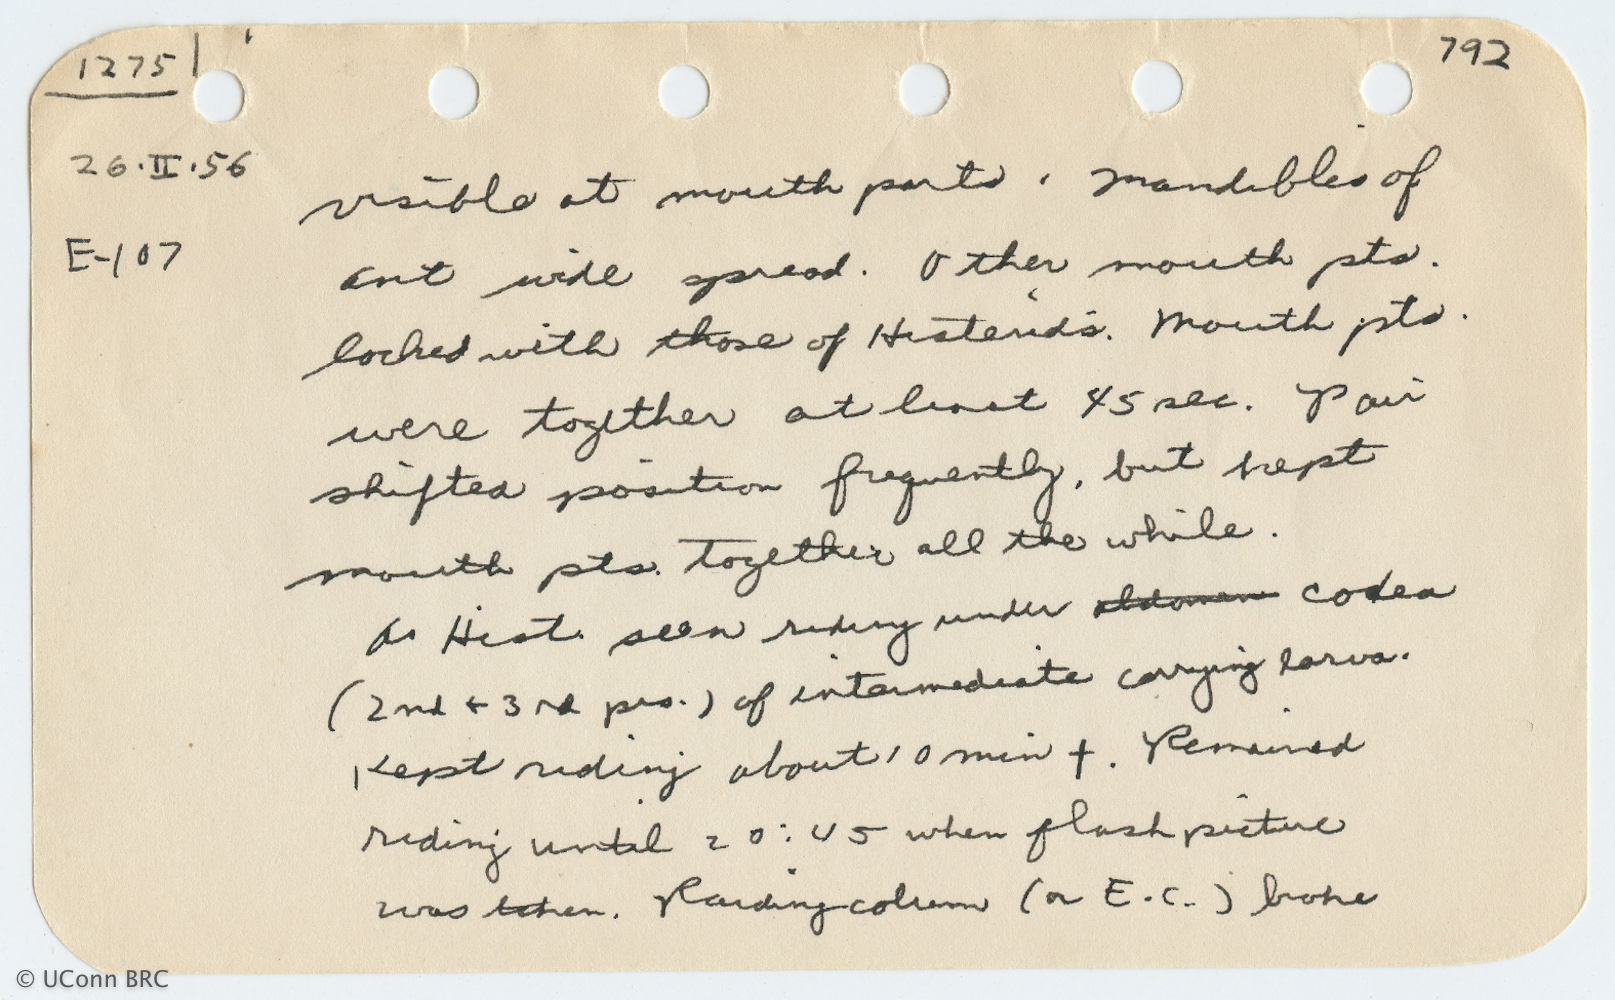 1275
792
26.II.56
E-107
visible at mouth parts. Mandibles of
ant wide spread. Other mouth pts.
locked with those of Histerid's. Mouth pts.
were together at least 45 sec. Pair
shifted position frequently, but kept
mouth pts. together all the while.
Hist. seen riding under abdomen coxea
(2nd + 3rd prs.) of intermediate carrying larva.
Kept riding about 10 min +. Remained
riding until 20:45 when flash picture
was taken. Raiding column (or E.C.) broke
© UConn BRC